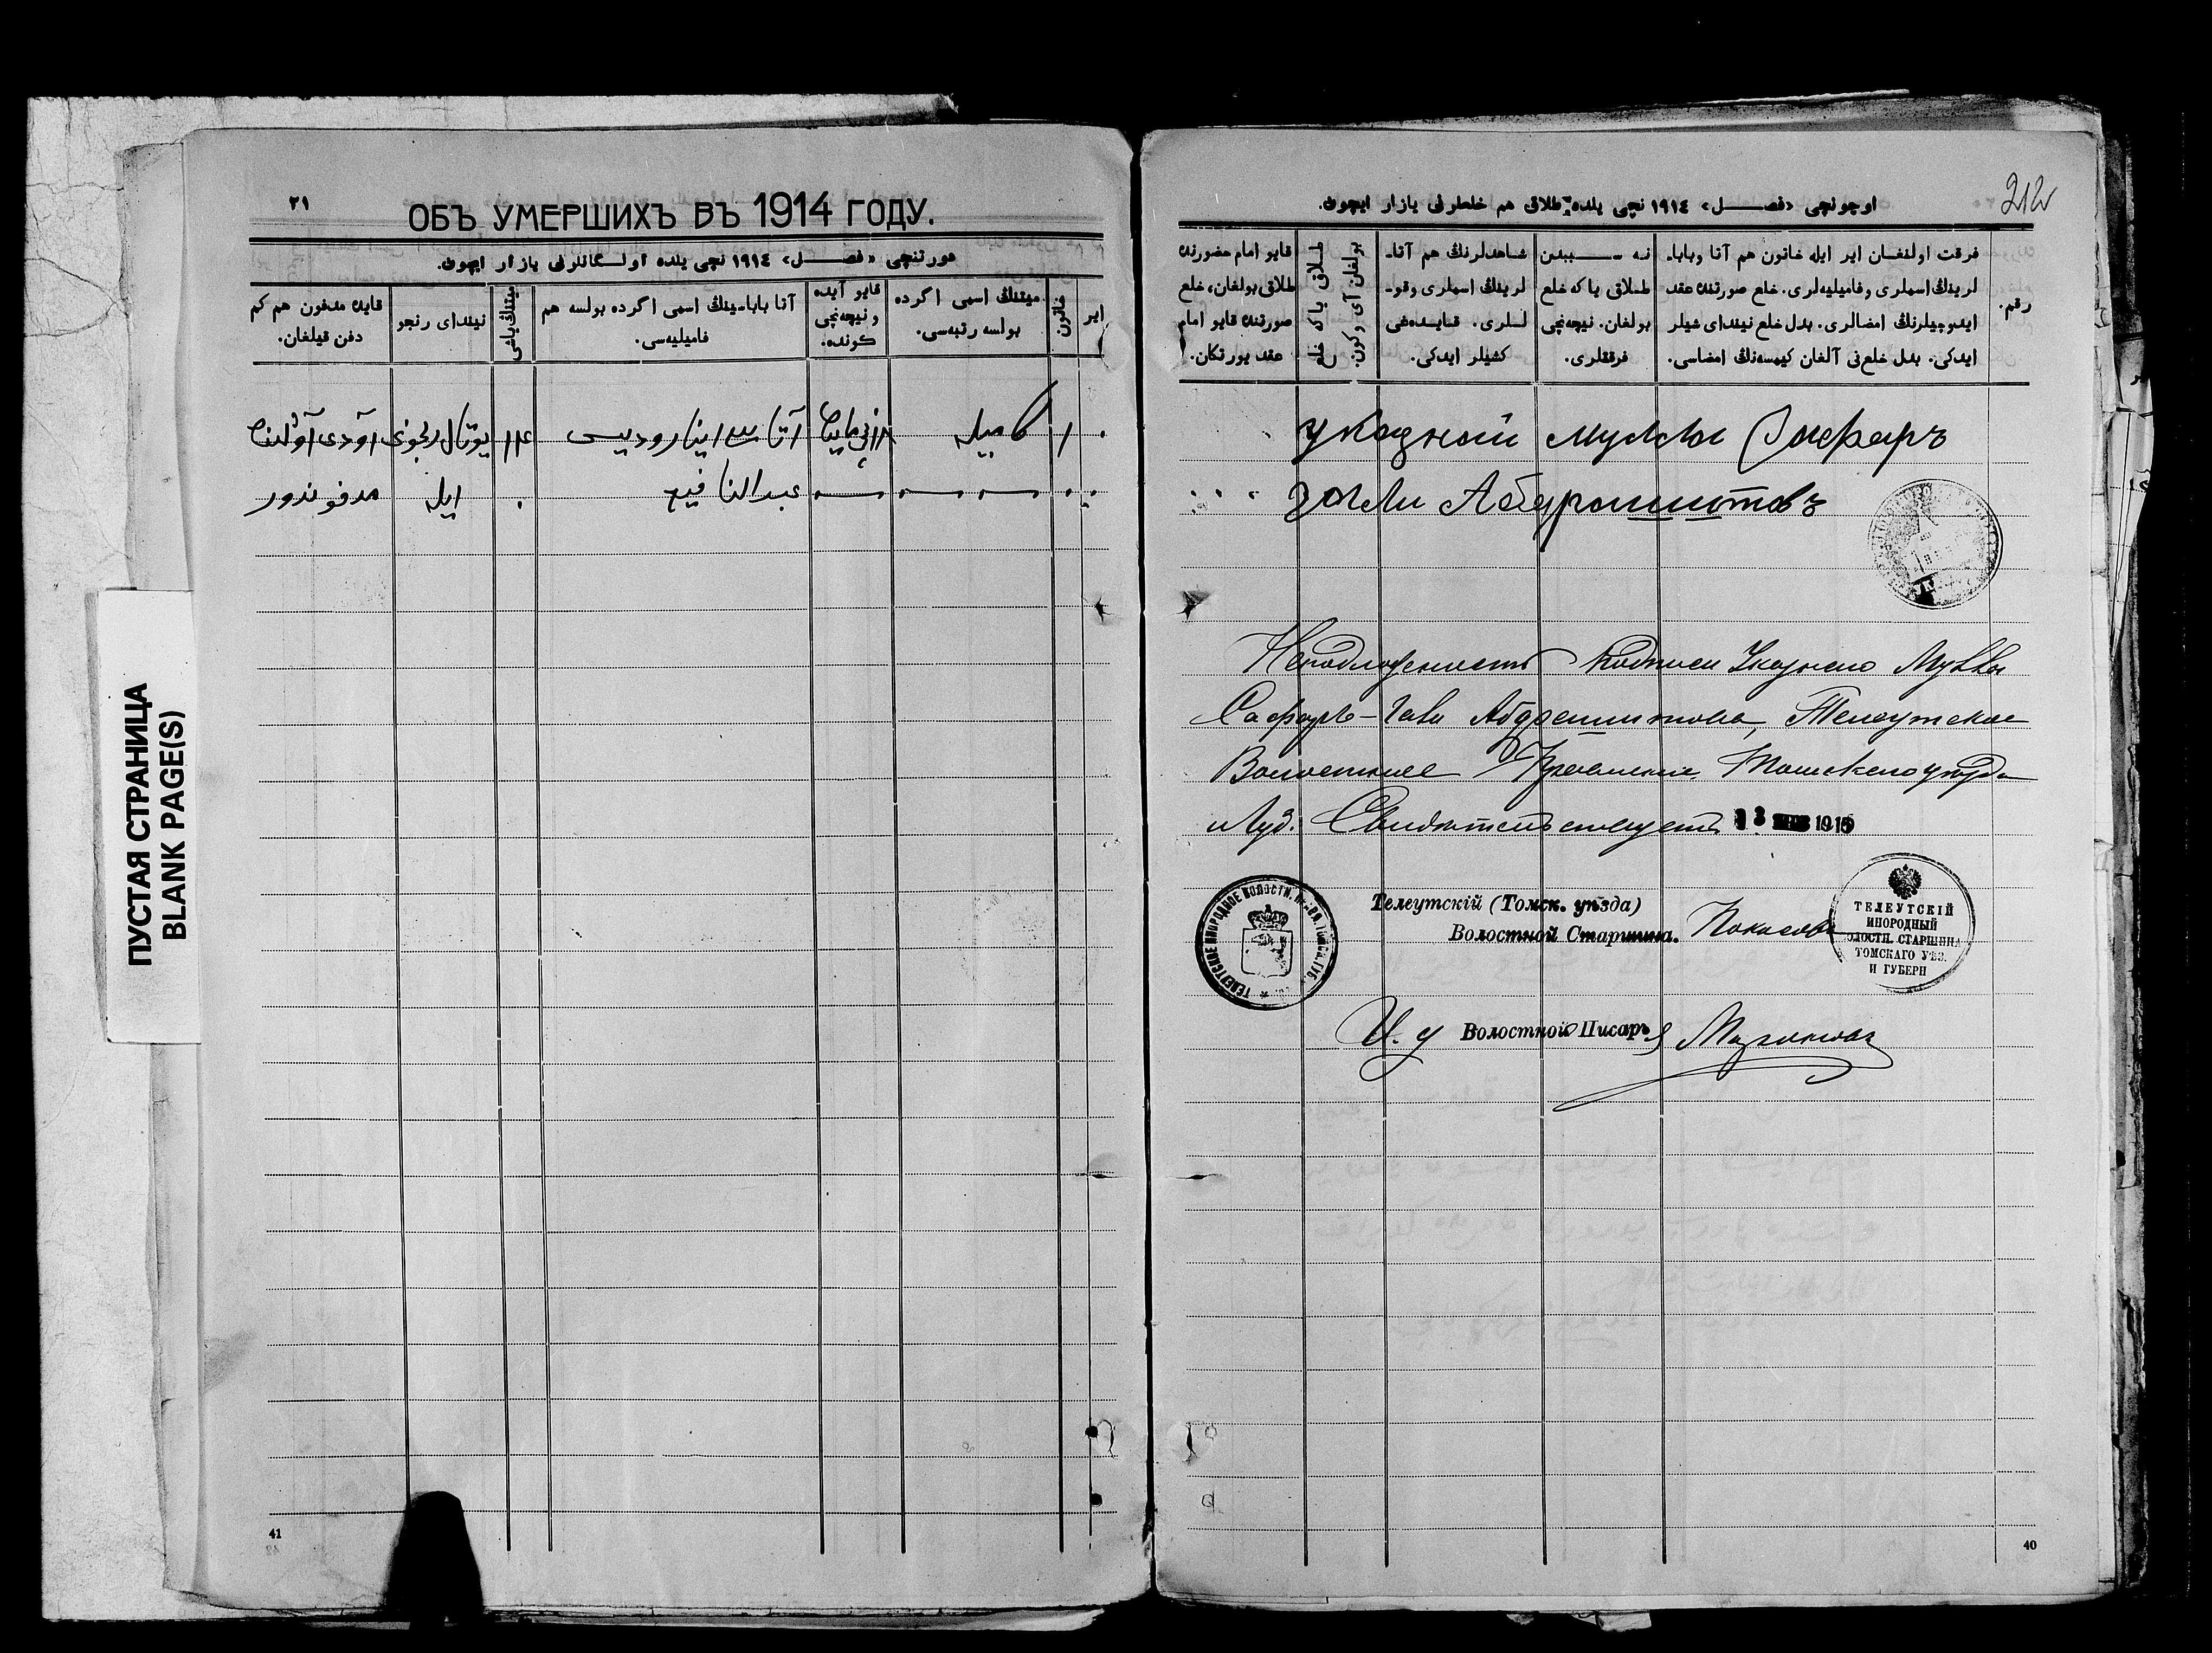 ٢١
ОБЪ УМЕРШИХЪ ВЪ 1914 ГОДУ.
دورتنچی «فصل» ١٩١٤ نچی یلده اولگانلرنی یازار ایچون.
ایر
خاتون
میتنڭ اسمی اگرده بولسه رتبه‌سی.
قایو آیده و نیچه‌نچی کونده.
آتا بابا‌سینڭ اسمی اگرده بولسه هم فامیلیه‌سی.
میتنڭ یاشی
نیندای رنجو
قایده مدفون هم کم دفن قیلغان.
١
کامیله
عبد
ایله
مدفوندور
41
ПУСТАЯ СТРАНИЦА
BLANK PAGE(S)
212
اوچونچی «فصل» ١٩١٤ نچی یلده طلاق هم خلعلرنی یازار ایچون.
رقم.
فرقت اولنغان ایر ایله خاتون هم آتا وبابا‌لرینڭ اسملری وفامیلیه‌لری. خلع صورتنده عقد ایدوچیلرنڭ امضالری. بدل خلع نیندای شیلر ایدکی. بدل خلع‌نی آلغان کیمسه‌نڭ امضاسی.
نه سببدن طلاق یاکه خلع بولغان. نیچه‌نچی فرقتلری.
شاهدلرنڭ هم آتا‌لرینڭ اسملری وقولـلری. قایده‌غی کشیلر ایدکی.
طلاق یاکه خلع بولغان آی وکون.
قایو امام حضورنده طلاق بولغان، خلع صورتنده قایو امام عقد یورتکان.
указной муллы Сафаръ
гали Абдрашитовъ
Неподложность подписи Указнаго Муллы
Сафаръ-Гали Абдрашитова, Телеутское
Волостное Правленіе Томскаго уѣзда
и Губ. Свидѣтельствуетъ 13 1915
Телеутскій (Томск. уѣзда)
Волостной Старшина.
ТЕЛЕУТСКОЕ ИНОРОДНОЕ ВОЛОСТН.
ТЕЛЕУТСКІЙ
ИНОРОДНЫЙ
ВОЛОСТН. СТАРШИНА
ТОМСКАГО УѢЗ.
И ГУБЕРН
И. д Волостной Писарь
40